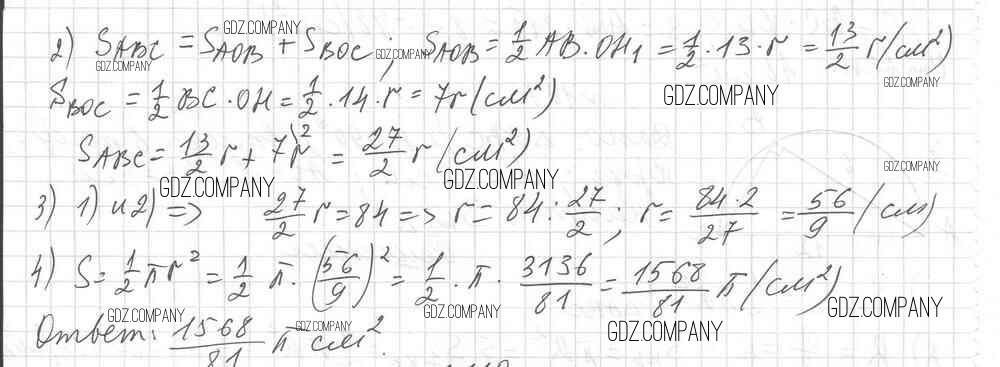 2) S_ABC = S_AOB + S_BOC; S_AOB = 1/2 AB·OH₁ = 1/2 · 13 · r = 13/2 r (см²)
S_BOC = 1/2 BC · OH = 1/2 · 14 · r = 7r (см²)
S_ABC = 13/2 r + 7r \2 = 27/2 r (см²)
3) 1) и 2) => 27/2 r = 84 => r = 84 : 27/2; r = 84·2/27 = 56/9 (см)
4) S = 1/2 πr² = 1/2 π · (56/9)² = 1/2 · π · 3136/81 = 1568/81 π (см²)
Ответ: 1568/81 π см².
GDZ.COMPANY
GDZ.COMPANY
GDZ.COMPANY
GDZ.COMPANY
GDZ.COMPANY
GDZ.COMPANY
GDZ.COMPANY
GDZ.COMPANY
GDZ.COMPANY
GDZ.COMPANY
GDZ.COMPANY
GDZ.COMPANY
GDZ.COMPANY